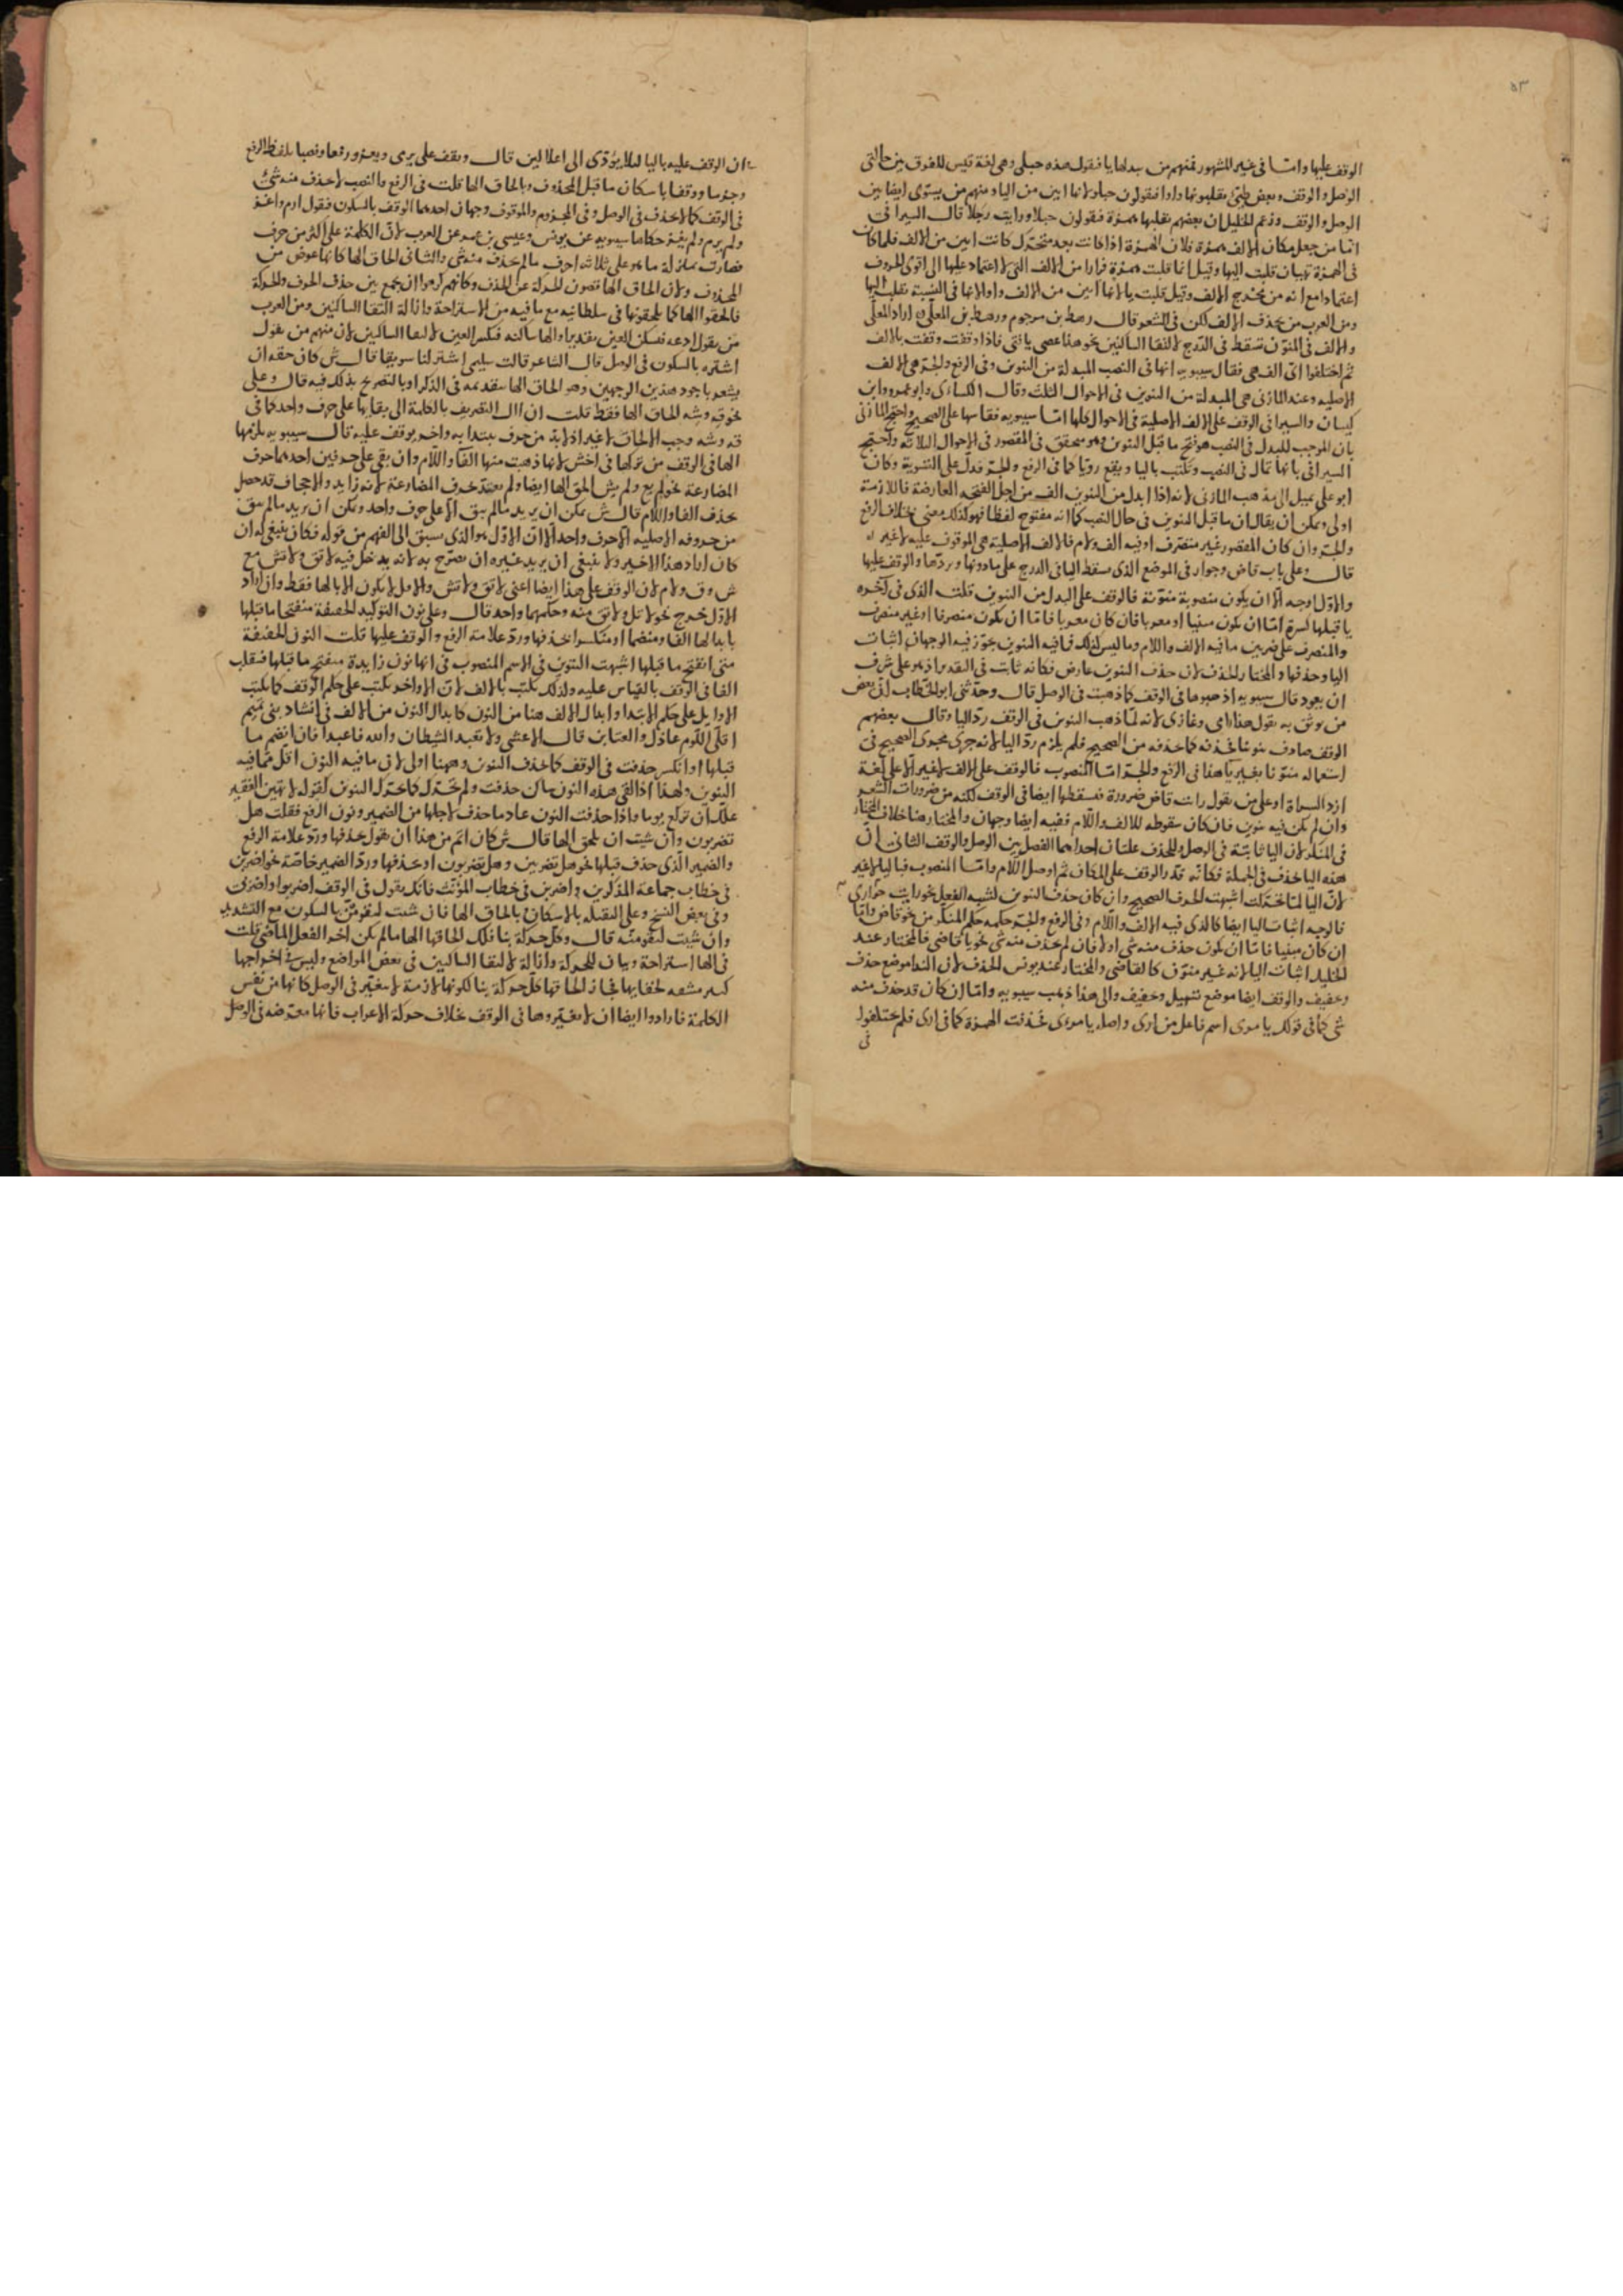 ٥٣
الوقف عليها واما في غير المشهور فمنهم من يبدلها يا فيقول هذه حبلى وهي لغة قيس للفرق بين حالتي
الوصل والوقف وبعض طيئ يقلبونها واوا فيقولون حبلو لانها ابين من اليا ومنهم من يستوى ايضا بين
الوصل والوقف وزعم الخليل ان بعضهم يقلبها همزة فيقولون حبلا ورايت رجلا قال السيرافي
انما من جعل مكان الالف همزة فلان الهمزة اذا كانت بعد متحرك كانت ابين من الالف فلما كان
في الهمزة تبيان قلبت اليها وقيل انما قلبت همزة فرارا من الالف التي لا اعتماد عليها الى اقوى الحروف
اعتمادا مع انه من مخرج الالف وقيل قلبت يا لانها ابين من الالف واوا لانها في النسبة تقلب اليها
ومن العرب من يحذف الالف لكن في الشعر قال رهط بن مرجوم ورهط بن المعل اراد المعلى
والالف في المنون تسقط في الدرج لالتقا الساكنين نحو هذا عصى يا فتى فاذا وقفت وقفت بالالف
ثم اختلفوا اي الف هي فقال سيبويه انها في النصب المبدلة من التنوين وفي الرفع والجر هي الالف
الاصليه وعند المازني هي المبدلة من التنوين في الاحوال الثلث وقال الكساءي وابو عمرو وابن
كيسان والسيرافي الوقف على الالف الاصلية في الاحوال كلها اما سيبويه فقاسها على الصحيح واحتج المازني
بان الموجب للبدل في النصب هو فتح ما قبل التنوين وهو متحقق في المقصور في الاحوال الثلاثة واحتج
السيرافي بانها تمال في النصب وتكتب باليا ويقع رويا كما في الرفع والجر فدل على التسوية وكان
ابو علي يميل الى مذهب المازني لانه اذا ابدل من التنوين الف من اجل الفتحة العارضة فاللازمة
اولى ويمكن ان يقال ان ما قبل التنوين في حال النصب كما انه مفتوح لفظا فهو كذلك معنى بخلاف الرفع
والجر وان كان المقصور غير منصرف او فيه الف ولام فالالف الاصلية هي الموقوف عليه لا غير
قال وعلى باب قاض وجوار في الموضع الذي سقط اليا في الدرج على ما دونها وبردها والوقف عليها
والاول اوجه الا ان يكون منصوبة منونة فالوقف على البدل من التنوين قلت الذي في آخره
يا قبلها كسرة اما ان يكون مبنيا او معربا فان كان معربا فاما ان يكون منصرفا او غير منصرف
والمنصرف على ضربين ما فيه الالف واللام وما ليس كذلك فما فيه التنوين يجوز فيه الوجهان اثبات
اليا وحذفها والمختار الحذف لان حذف التنوين عارض فكانه ثابت في التقدير اذ هو على شرف
ان يعود قال سيبويه اذهبوها في الوقف كما ذهبت في الوصل قال وحدثنى ابو الخطاب ان بعض
من يوثق به يقول هذا رامى وغازى لانه لما ذهب التنوين في الوقف رد اليا وقال بعضهم
الوقف صادف منونا فحذفه كما حذفه من الصحيح فلم يلزم رد اليا لانه جرى مجرى الصحيح في
استعماله منونا بغير يا هذا في الرفع والجر اما المنصوب فالوقف على الالف لا غير الا على لغة
ازد السراة او على من يقول رايت قاض ضرورة فيسقطها ايضا في الوقف لكنه من ضرورات الشعر
وان لم يكن فيه تنوين فان كان سقوطه للالف واللام ففيه ايضا وجهان والمختار هنا خلاف المختار
في المنكر لان اليا ثابتة في الوصل وللحذف علتان احداهما الفصل بين الوصل والوقف الثاني ان
هذه اليا تحذف في الجملة فكانه قدر الوقف على المكان ثم اوصل اللام واما المنصوب فباليا لا غير
لان اليا لما تحركت اشبهت الحرف الصحيح وان كان حذف التنوين لشبه الفعل نحو رايت جوارى
فالوجه اثبات اليا ايضا كالذي فيه الالف واللام وفي الرفع والجر حكمه حكم المنكر من نحو قاض واما
ان كان مبنيا فاما ان يكون حذف منه شي او لا فان لم يحذف منه شي نحو يا قاضي فالمختار عند
الخليل اثبات اليا لانه غير منون كالقاضي والمختار عند يونس الحذف لان الندا موضع حذف
وتخفيف والوقف ايضا موضع تسهيل وتخفيف والى هذا ذهب سيبويه واما ان كان قد حذف منه
شي كما في قولك يا مرى اسم فاعل من ارى واصله يا مرءى فحذفت الهمزة كما في ارى فلم يختلفوا
في
ان الوقف عليه باليا ليلا يؤدى الى اعلالين قال ويقف على يرمى ويغزو رفعا ونصبا بلفظ الرفع
وجزما ووقفا باسكان ما قبل المحذوف وبالحاق الها قلت في الرفع والنصب لا حذف منه شئ
في الوقف كما لا حذف في الوصل وفي المجزوم والموقوف وجهان احدهما الوقف بالسكون فيقول ارم واغز
ولم يرم ولم يغز حكاها سيبويه عن يونس وعيسى بن عمر عن العرب لان الكلمة على اكثر من حرف
فصارت بمنزلة ما هو على ثلاثة احرف مما لم يحذف منه شي والثاني الحاق الها كانها عوض من
المحذوف ولان الحاق الها تصون الحركة عن الحذف وكانهم كرهوا ان يجمع بين حذف الحرف والحركة
فالحقوا الها كما يلحقونها في سلطانيه مع ما فيه من الاستراحة وازالة التقا الساكنين ومن العرب
من يقول ادعه فيسكن العين تقديرا والها ساكنه فيكسر العين لالتقا الساكنين لان منهم من يقول
اشتره بالسكون في الوصل قال الشاعر قالت سليمى اشتر لنا سويقا قال ش كان حقه ان
يشعر باجود هذين الوجهين وهو الحاق الها بتقديمه في الذكر او بالتصريح بذلك فيه قال وعلى
نحو قه وشه الحاق الها فقط قلت ان آل التصريف بالكلمة الى بقايها على حرف واحد كما في
قه وشه وجب الالحاق لا غير اذ لا بد من حرف يبتدا به واخر يوقف عليه قال سيبويه يلزمها
الها في الوقف من تركها في اخش لانها ذهبت منها الفا واللام وان بقي على حرفين احدهما حرف
المضارعة نحو لم يع ولم يش الحق الها ايضا ولم يعتد حرف المضارعة لانه زايد والاجحاف قد حصل
بحذف الفا واللام قال ش يمكن ان يريد ما لم يبق الا على حرف واحد ويمكن ان يريد ما لم يبق
من حروفه الاصليه الا حرف واحد الا ان الاول هو الذي سبق الى الفهم من قوله فكان ينبغي له ان
كان اراد هذا الاخير ولا ينبغي ان يريد غيره ان يصرح به لانه يدخل فيه لا تق ولا تش مع
ش وق ولام لان الوقف على هذا ايضا اعنى لا تق ولا تش والاول لا يكون الا بالها فقط وان اراد
الاول خرج نحو لا تل ولا تق منه وحكمهما واحد قال وعلى نون التوكيد الخفيفة منفتحا ما قبلها
بابدالها الفا ومنضما او منكسرا حذفها ورد علامة الرفع والوقف عليها قلت النون الخفيفة
متى انفتح ما قبلها اشبهت التنوين في الاسم المنصوب في انها نون زايدة منفتح ما قبلها فتقلب
الفا في الوقف بالقياس عليه ولذلك يكتب بالالف لان الاواخر يكتب على حكم الوقف كما يكتب
الاوايل على حكم الابتدا وابدال الالف هنا من النون كابدال النون من الالف في انشاد بني تميم
اقلى اللوم عاذل والعتابن قال الاعشى ولا تعبد الشيطان والله فاعبدا فان انضم ما
قبلها او انكسر حذفت في الوقف كما حذف التنوين وههنا اولى لان ما فيه النون اقل مما فيه
التنوين ولهذا اذا لقى هذه النون ساكن حذفت ولم تحرك كما تحرك التنوين كقوله لا تهين الفقير
علك ان تركع يوما واذا حذفت النون عاد ما حذف لاجلها من الضمير ونون الرفع فقلت هل
تضربون وان شيت ان يلحق الها قال ش كان اتم من هذا ان يقول بحذفها ورد علامة الرفع
والضمير الذي حذف قبلها نحو هل تضربين وهل تضربون او بحذفها ورد الضمير خاصة نحو اضربن
في خطاب جماعة المذكرين واضربن في خطاب المؤنث فانك تقول في الوقف اضربوا واضربى
وفي بعض النسخ وعلى الثقيلة بالاسكان بالحاق الها فان شيت ليقومن بالسكون مع التشديد
وان شيت ليقومنه قال وكل حركة بنا فلك الحاقها الها ما لم يكن اخر الفعل الماضي قلت
في الها استراحة وبيان للحركة وازالة لالتقا الساكنين في بعض المواضع وليس في اخراجها
كبير مشقة لخفايها فجاز الحاقها كل حركة بنا لكونها لازمة لا يتغير في الوصل كانها من نفس
الكلمة فارادوا ايضا ان لا يغيروها في الوقف بخلاف حركة الاعراب فانها معترضه في الوصل